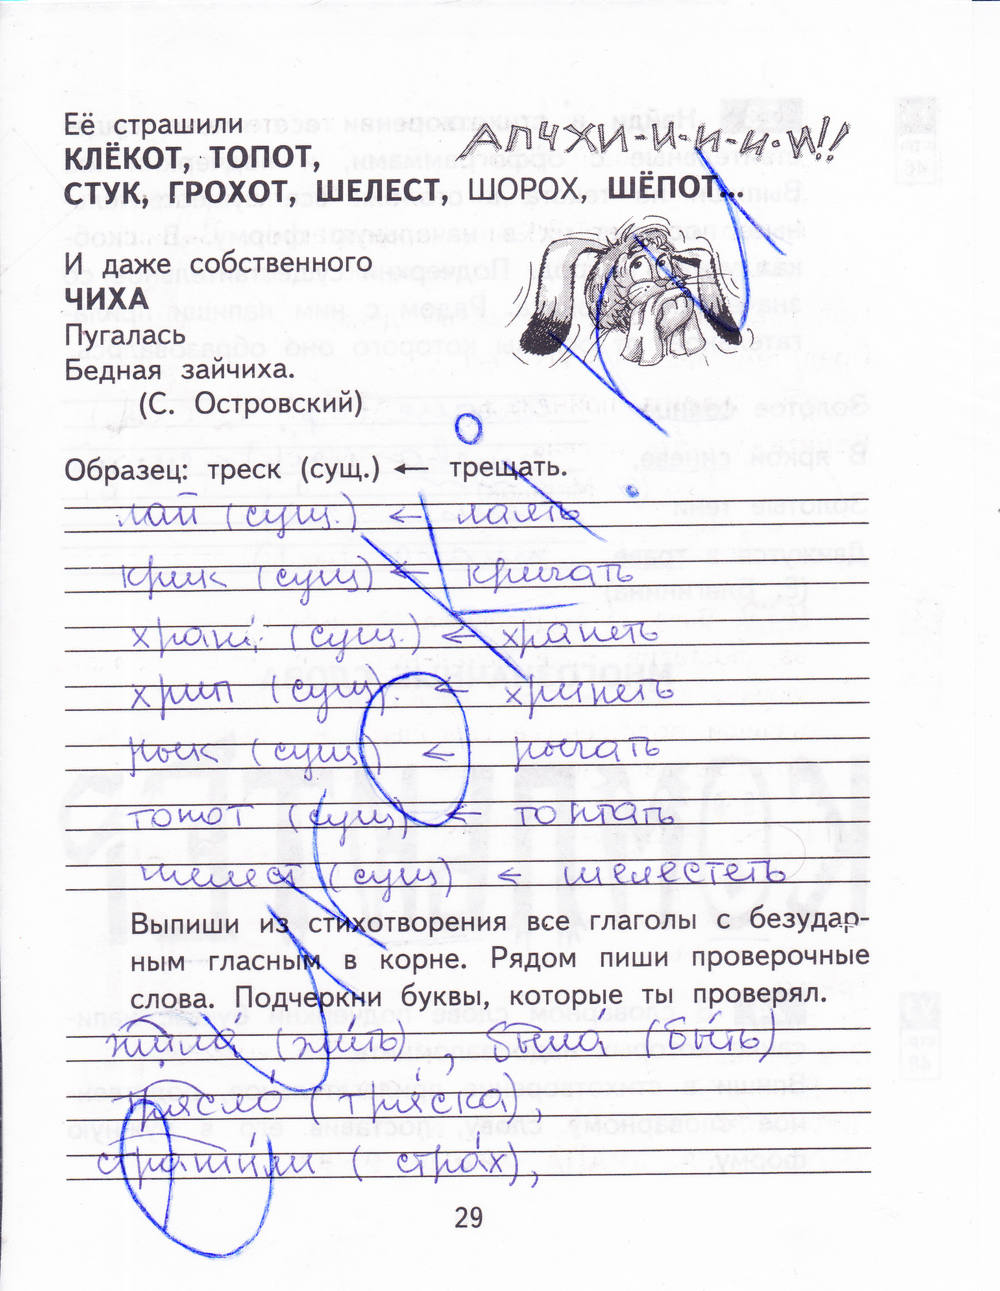 Её страшили
КЛЁКОТ, ТОПОТ,
АПЧХИ-И-И-И-И!!
СТУК, ГРОХОТ, ШЕЛЕСТ, ШОРОХ, ШЁПОТ...
И даже собственного
ЧИХА
Пугалась
Бедная зайчиха.
(С. Островский)
Образец: треск (сущ.) ← трещать.
лай (сущ.) ← лаять
крик (сущ) ← кричать
храп (сущ.) ← храпеть
хрип (сущ). ← хрипеть
рык (сущ) ← рычать
топот (сущ) ← топтать
шелест (сущ) ← шелестеть
Выпиши из стихотворения все глаголы с безудар-
ным гласным в корне. Рядом пиши проверочные
слова. Подчеркни буквы, которые ты проверял.
жила (жить), была (быть)
трясло (тряска),
страшили (страх),
29